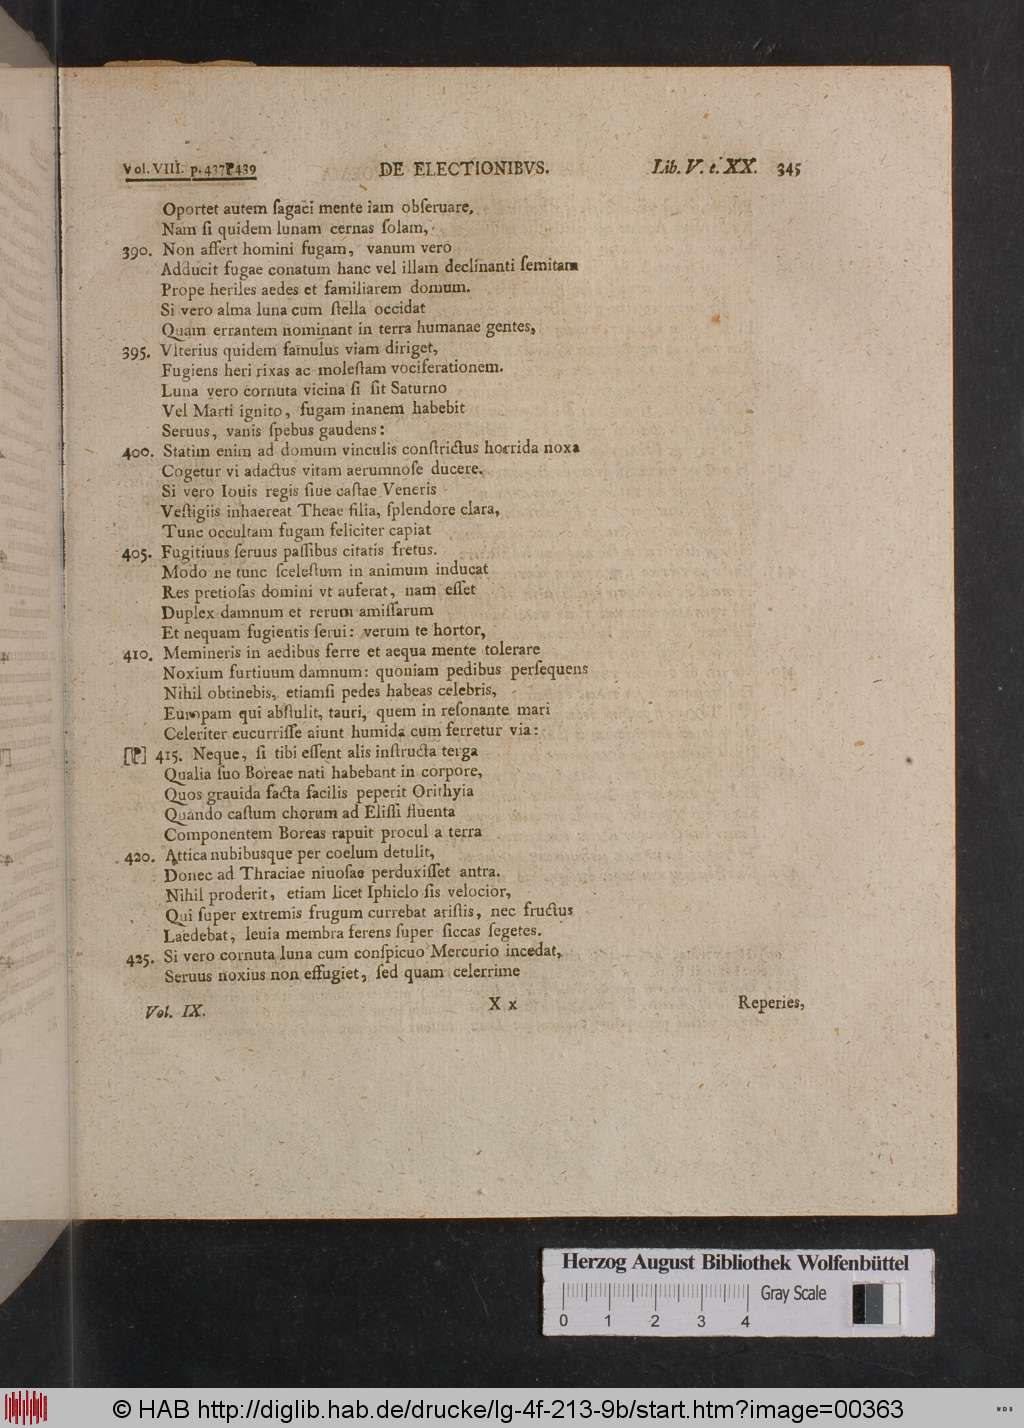 Vol. VIII. p. 437⁋439 DE ELECTIONIBVS. Lib. V. c. XX. 345
Oportet autem ſagaci mente iam obſeruare,
Nam ſi quidem lunam cernas ſolam,
390. Non affert homini fugam, vanum vero
Adducit fugae conatum hanc vel illam declinanti ſemitam
Prope heriles aedes et familiarem domum.
Si vero alma luna cum ſtella occidat
Quam errantem nominant in terra humanae gentes,
395. Vlterius quidem famulus viam diriget,
Fugiens heri rixas ac moleſtam vociferationem.
Luna vero cornuta vicina ſi ſit Saturno
Vel Marti ignito, fugam inanem habebit
Seruus, vanis ſpebus gaudens:
400. Statim enim ad domum vinculis conſtrictus horrida noxa
Cogetur vi adactus vitam aerumnoſe ducere.
Si vero Iouis regis ſiue caſtae Veneris
Veſtigiis inhaereat Theae filia, ſplendore clara,
Tunc occultam fugam feliciter capiat
405. Fugitiuus ſeruus paſſibus citatis fretus.
Modo ne tunc ſceleſtum in animum inducat
Res pretioſas domini vt auferat, nam eſſet
Duplex damnum et rerum amiſſarum
Et nequam fugientis ſerui: verum te hortor,
410. Memineris in aedibus ferre et aequa mente tolerare
Noxium furtiuum damnum: quoniam pedibus perſequens
Nihil obtinebis, etiamſi pedes habeas celebris,
Europam qui abſtulit, tauri, quem in reſonante mari
Celeriter cucurriſſe aiunt humida cum ferretur via:
[⁋] 415. Neque, ſi tibi eſſent alis inſtructa terga
Qualia ſuo Boreae nati habebant in corpore,
Quos grauida facta facilis peperit Orithyia
Quando caſtum chorum ad Eliſſi fluenta
Componentem Boreas rapuit procul a terra
420. Attica nubibusque per coelum detulit,
Donec ad Thraciae niuoſae perduxiſſet antra.
Nihil proderit, etiam licet Iphiclo ſis velocior,
Qui ſuper extremis frugum currebat ariſtis, nec fructus
Laedebat, leuia membra ferens ſuper ſiccas ſegetes.
425. Si vero cornuta luna cum conſpicuo Mercurio incedat,
Seruus noxius non effugiet, ſed quam celerrime
Vol. IX. X x Reperies,
Herzog August Bibliothek Wolfenbüttel
Gray Scale
0 1 2 3 4
© HAB http://diglib.hab.de/drucke/lg-4f-213-9b/start.htm?image=00363